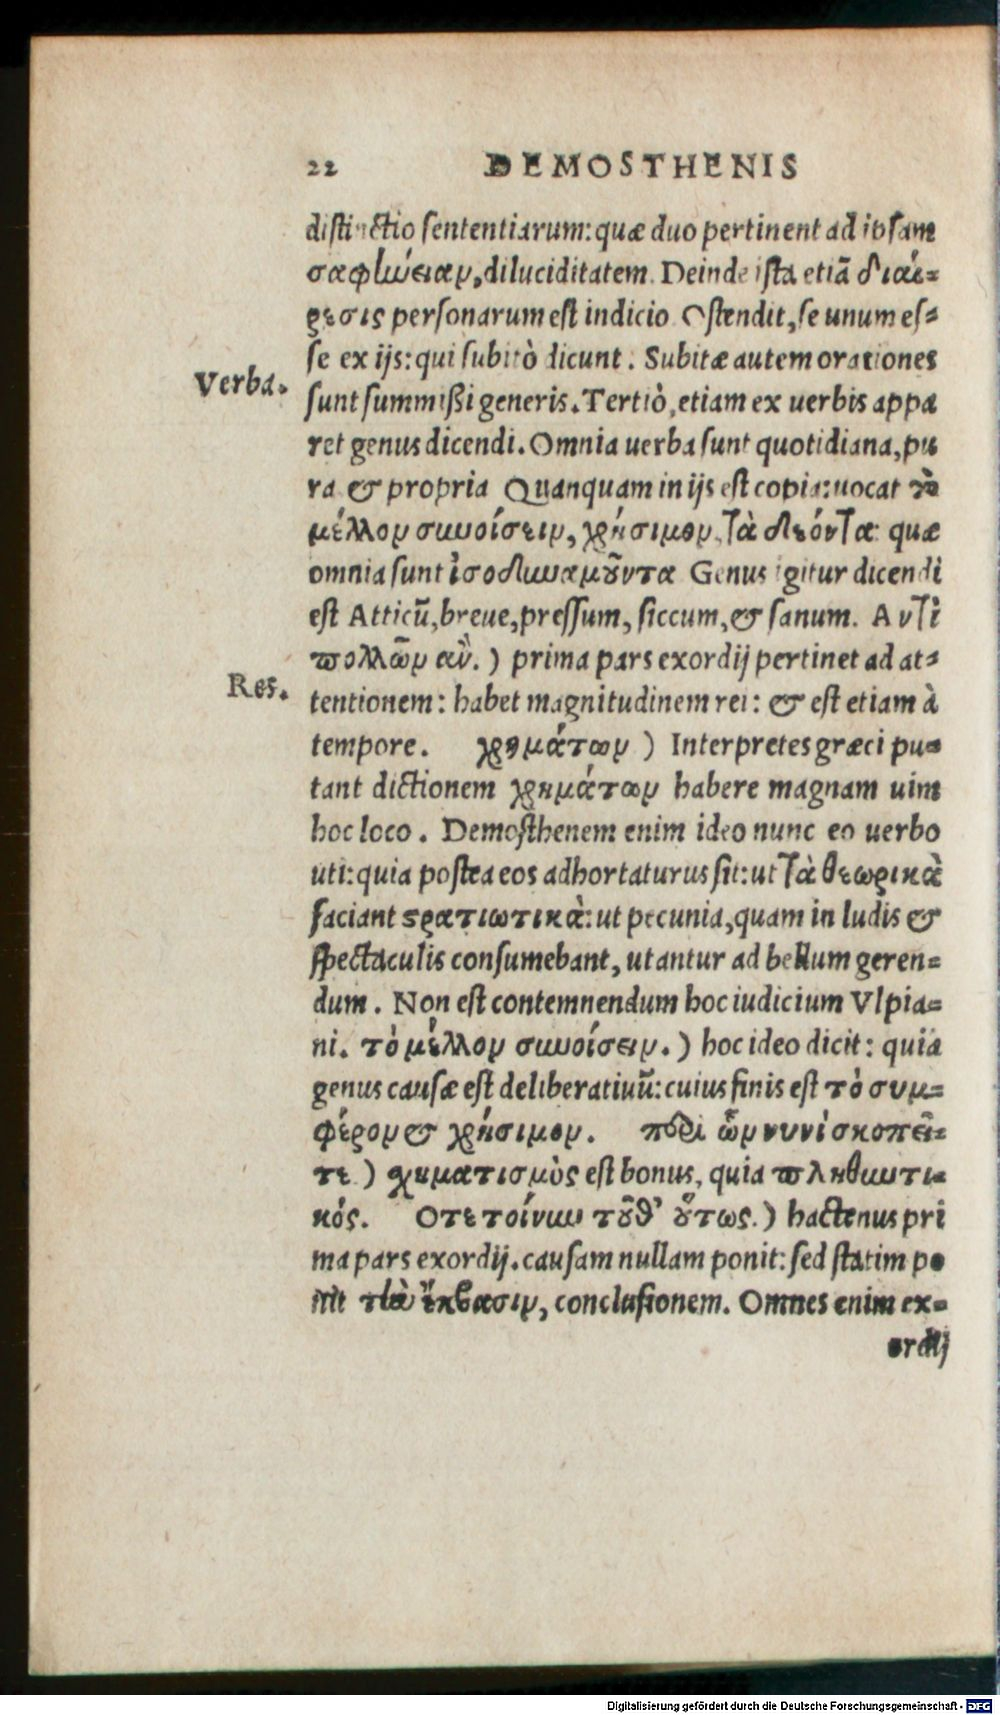 22 DEMOSTHENIS
distinctio sententiarum: quæ duo pertinent ad ipsam
σαφήνειαν, diluciditatem. Deinde ista etiã διαί-
ρεσις personarum est indicio. Ostendit, se unum es-
se ex ijs: qui subitò dicunt. Subitæ autem orationes
Verba.
sunt summißi generis. Tertiò, etiam ex uerbis appa
ret genus dicendi. Omnia uerba sunt quotidiana, pu
ra & propria Quanquam in ijs est copia: uocat τὸ
μέλλον συνοίσειν, χρήσιμον, τὰ δέοντα: quæ
omnia sunt ἰσοδυναμοῦντα Genus igitur dicendi
est Atticũ, breue, pressum, siccum, & sanum. Αντὶ
πολλῶν ἂν.) prima pars exordij pertinet ad at-
Res.
tentionem: habet magnitudinem rei: & est etiam à
tempore. χρημάτων) Interpretes græci pu-
tant dictionem χρημάτων habere magnam uim
hoc loco. Demosthenem enim ideo nunc eo uerbo
uti: quia postea eos adhortaturus sit: ut τὰ θεωρικὰ
faciant στρατιωτικὰ: ut pecunia, quam in ludis &
spectaculis consumebant, utantur ad bellum geren-
dum. Non est contemnendum hoc iudicium Vlpia-
ni. τὸ μέλλον συνοίσειν.) hoc ideo dicit: quia
genus causæ est deliberatiuũ: cuius finis est τὸ συμ-
φέρον & χρήσιμον. περὶ ὧν νυνὶ σκοπεῖ-
τε) χηματισμὸς est bonus, quia πληθυντι-
κός. Οτε τοίνυν τοῦθ' οὕτως.) hactenus pri
ma pars exordij. causam nullam ponit: sed statim po
nit τὴν ἔκβασιν, conclusionem. Omnes enim ex-
ordij
Digitalisierung gefördert durch die Deutsche Forschungsgemeinschaft - DFG